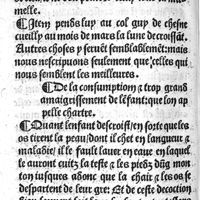 melle.
¶Item pends luy au col guy de chesne
cueilly au mois de mars la lune decroissãt.
Autres choses y seruẽt semblablemẽt: mais
nous nescripuons seulement que celles qui
nous semblent les meilleures.
¶De la consumption ⁊ trop grand
amaigrissement de lẽfant: que lon ap
pelle chartre.
¶Quant lenfant descroist / en sorte que les
os tirent la peau / dont il chet en langueur ⁊
maladie / il te fault lauer en eaue en laquel
le auront cuitz la teste ⁊ les piedz dũg mon
ton iusques adonc que la chair ⁊ les os se
despartent de leur gre: Et de ceste decoction